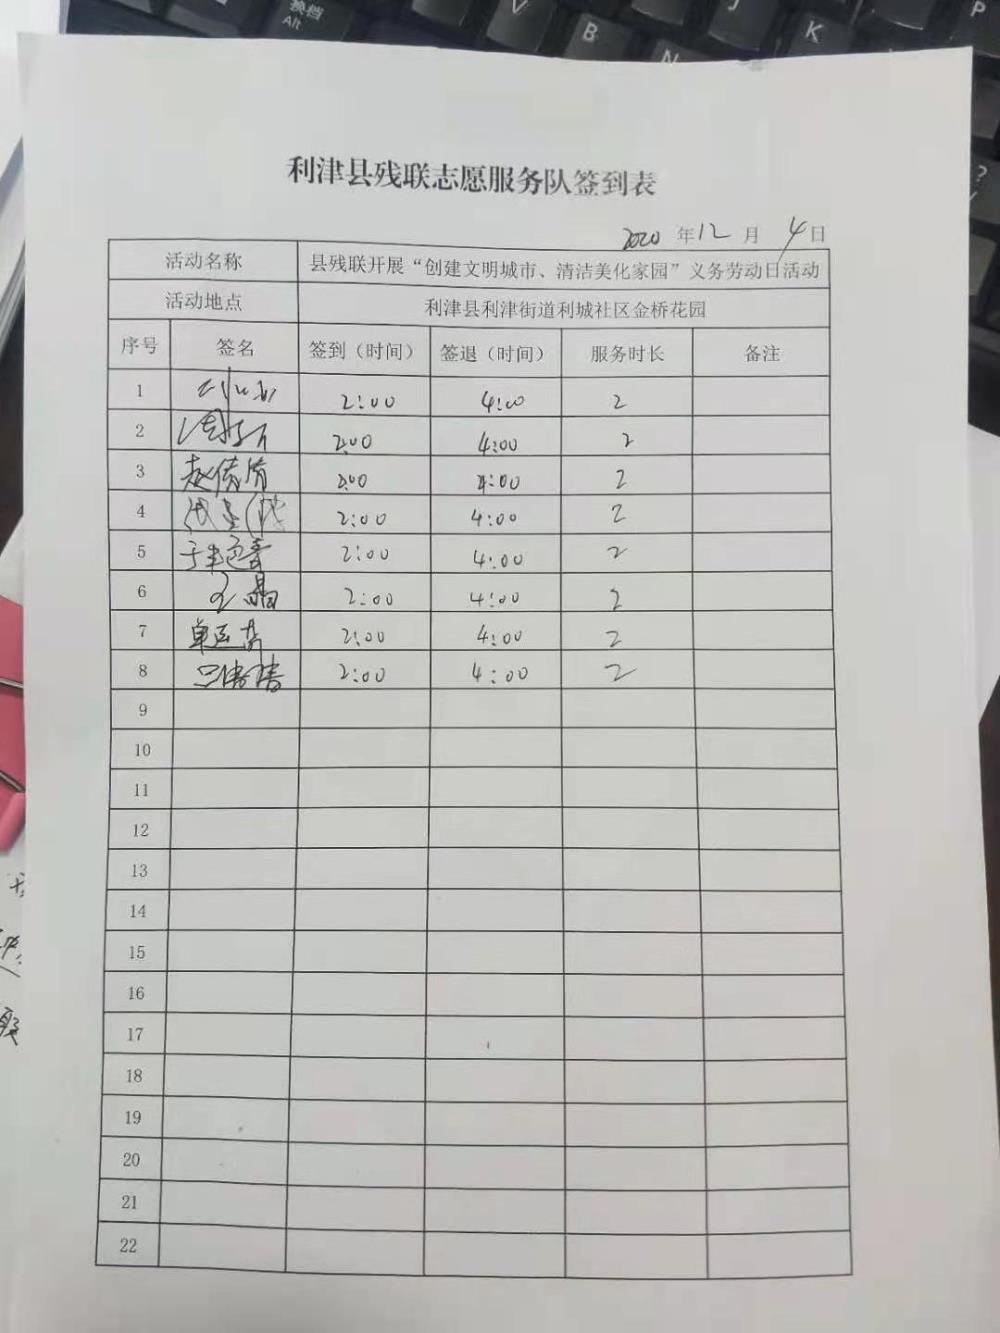 换档
Alt
V
B
N
J
K
P
?
利津县残联志愿服务队签到表
2020 年 12 月 4 日
活动名称 县残联开展“创建文明城市、清洁美化家园”义务劳动日活动
活动地点 利津县利津街道利城社区金桥花园
序号 签名 签到（时间） 签退（时间） 服务时长 备注
1 2:00 4:00 2
2 2:00 4:00 2
3 赵倩倩 2:00 4:00 2
4 2:00 4:00 2
5 2:00 4:00 2
6 王晶 2:00 4:00 2
7 2:00 4:00 2
8 2:00 4:00 2
9
10
11
12
13
14
15
16
17
18
19
20
21
22